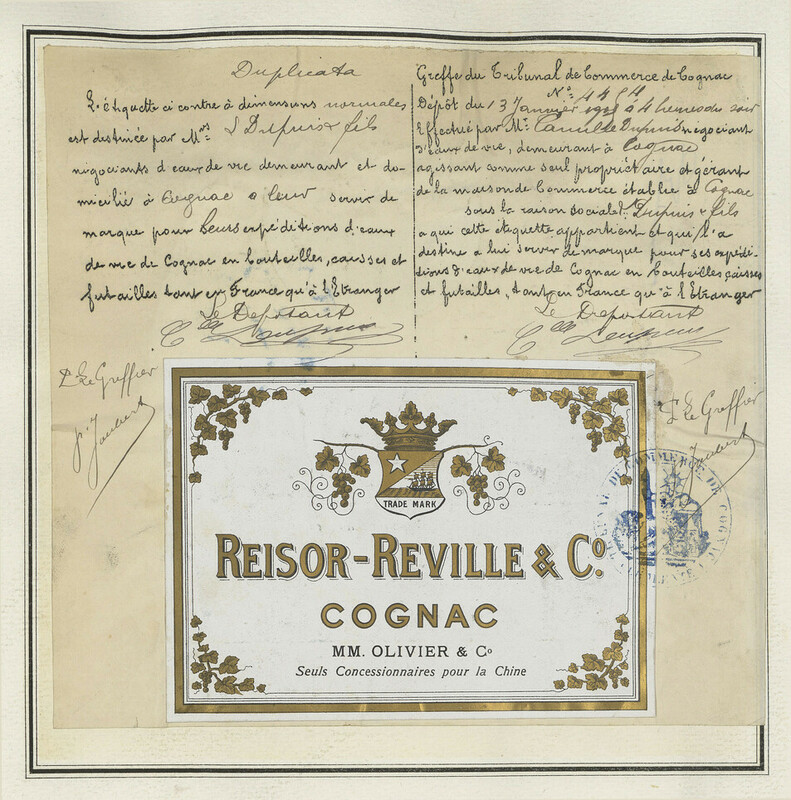 Duplicata
L'étiquette ci contre à dimensions normales
est destinée par Mrs J Dupuis & fils
négociants d'eaux de vie demeurant et do-
micilié à Cognac a leur servir de
marque pour leurs expéditions d'eaux
de vie de Cognac en bouteilles, caisses et
futailles tant en France qu'à l'Etranger
Le Deposant
Clle Dupuis
P. Le Greffier
Joubert
Greffe du Tribunal de Commerce de Cognac
No. 4454
Dépôt du 13 Janvier à 4 heures du soir
Effectué par Mr. Camille Dupuis négociant
d'eaux de vie, demeurant à Cognac
agissant comme seul propriétaire et gérant
de la maison de Commerce établie à Cognac
sous la raison sociale J. Dupuis & fils
a qui cette étiquette appartient et qui l'a
destine a lui servir de marque pour ses expédi-
tions d'eaux de vie de Cognac en bouteilles, caisses
et futailles, tant en France qu'à l'Etranger
Le Deposant
Clle Dupuis
P. Le Greffier
Joubert
TRIBUNAL DE COMMERCE DE COGNAC
TRADE MARK
REISOR-REVILLE & Co.
COGNAC
MM. OLIVIER & Co
Seuls Concessionnaires pour la Chine